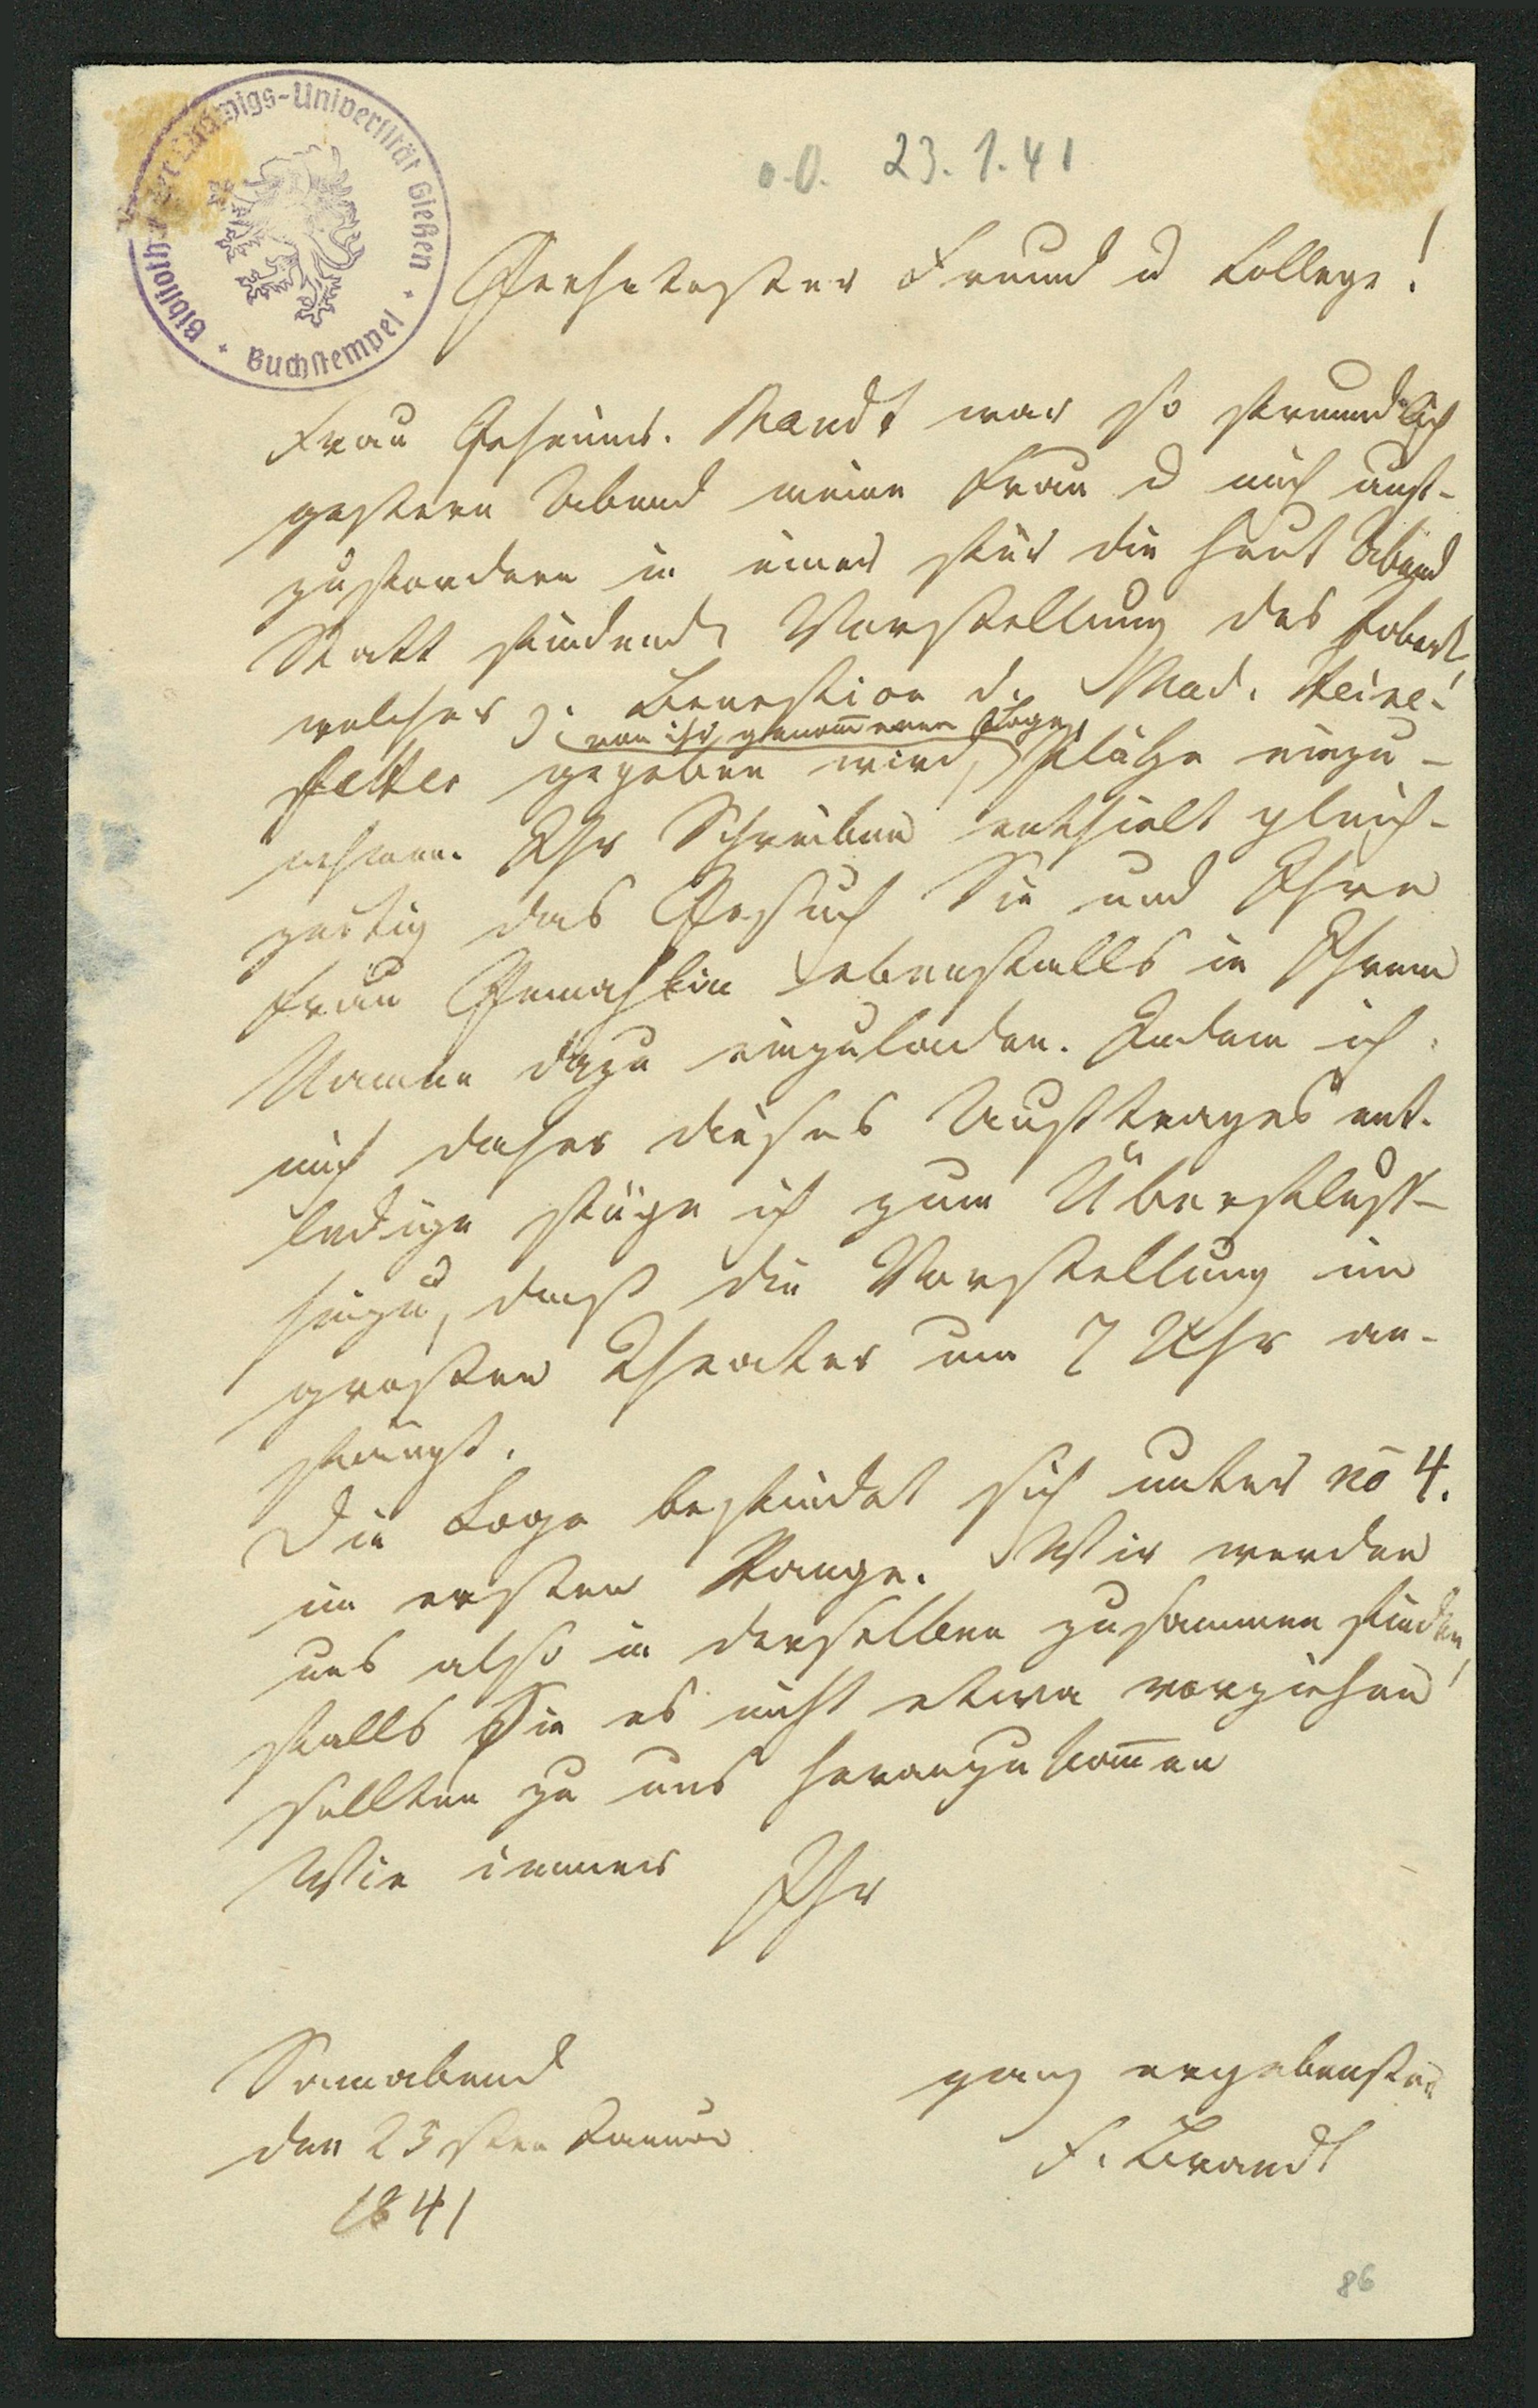 Bibliothek der Ludwigs-Universität Gießen
Buchstempel
o.O. 23.1.41
Geehrtester Freund u College!
Frau Geheimr. Mandt war so freundlich
gestern Abend meine Frau u mich auf-
zufordern in einer für die heut Abend
Statt findende Vorstellung des Robert,
welcher z. Benefice d. Mad. Heine-
von ihr genom̄enen Loge
fetter gegeben wird, Plätze einzu-
nehmen. Ihr Schreiben enthielt gleich-
zeitig das Gesuch Sie und Ihre
Frau Gemahlin ebenfalls in Ihrem
Namen dazu einzuladen. Indem ich
mich daher dieses Auftrages ent-
ledige füge ich zum Überfluss
hinzu, dass die Vorstellung im
grossen Theater um 7 Uhr an-
fängt.
Die Loge befindet sich unter no 4.
im ersten Range. Wir werden
uns also in derselben zusammen finden,
falls Sie es nicht etwa vorziehen
sollten zu uns heranzukom̄en
Wie immer Ihr
Sonnabend
den 23sten Januar
1841
ganz ergebenster
F. Brandt
86